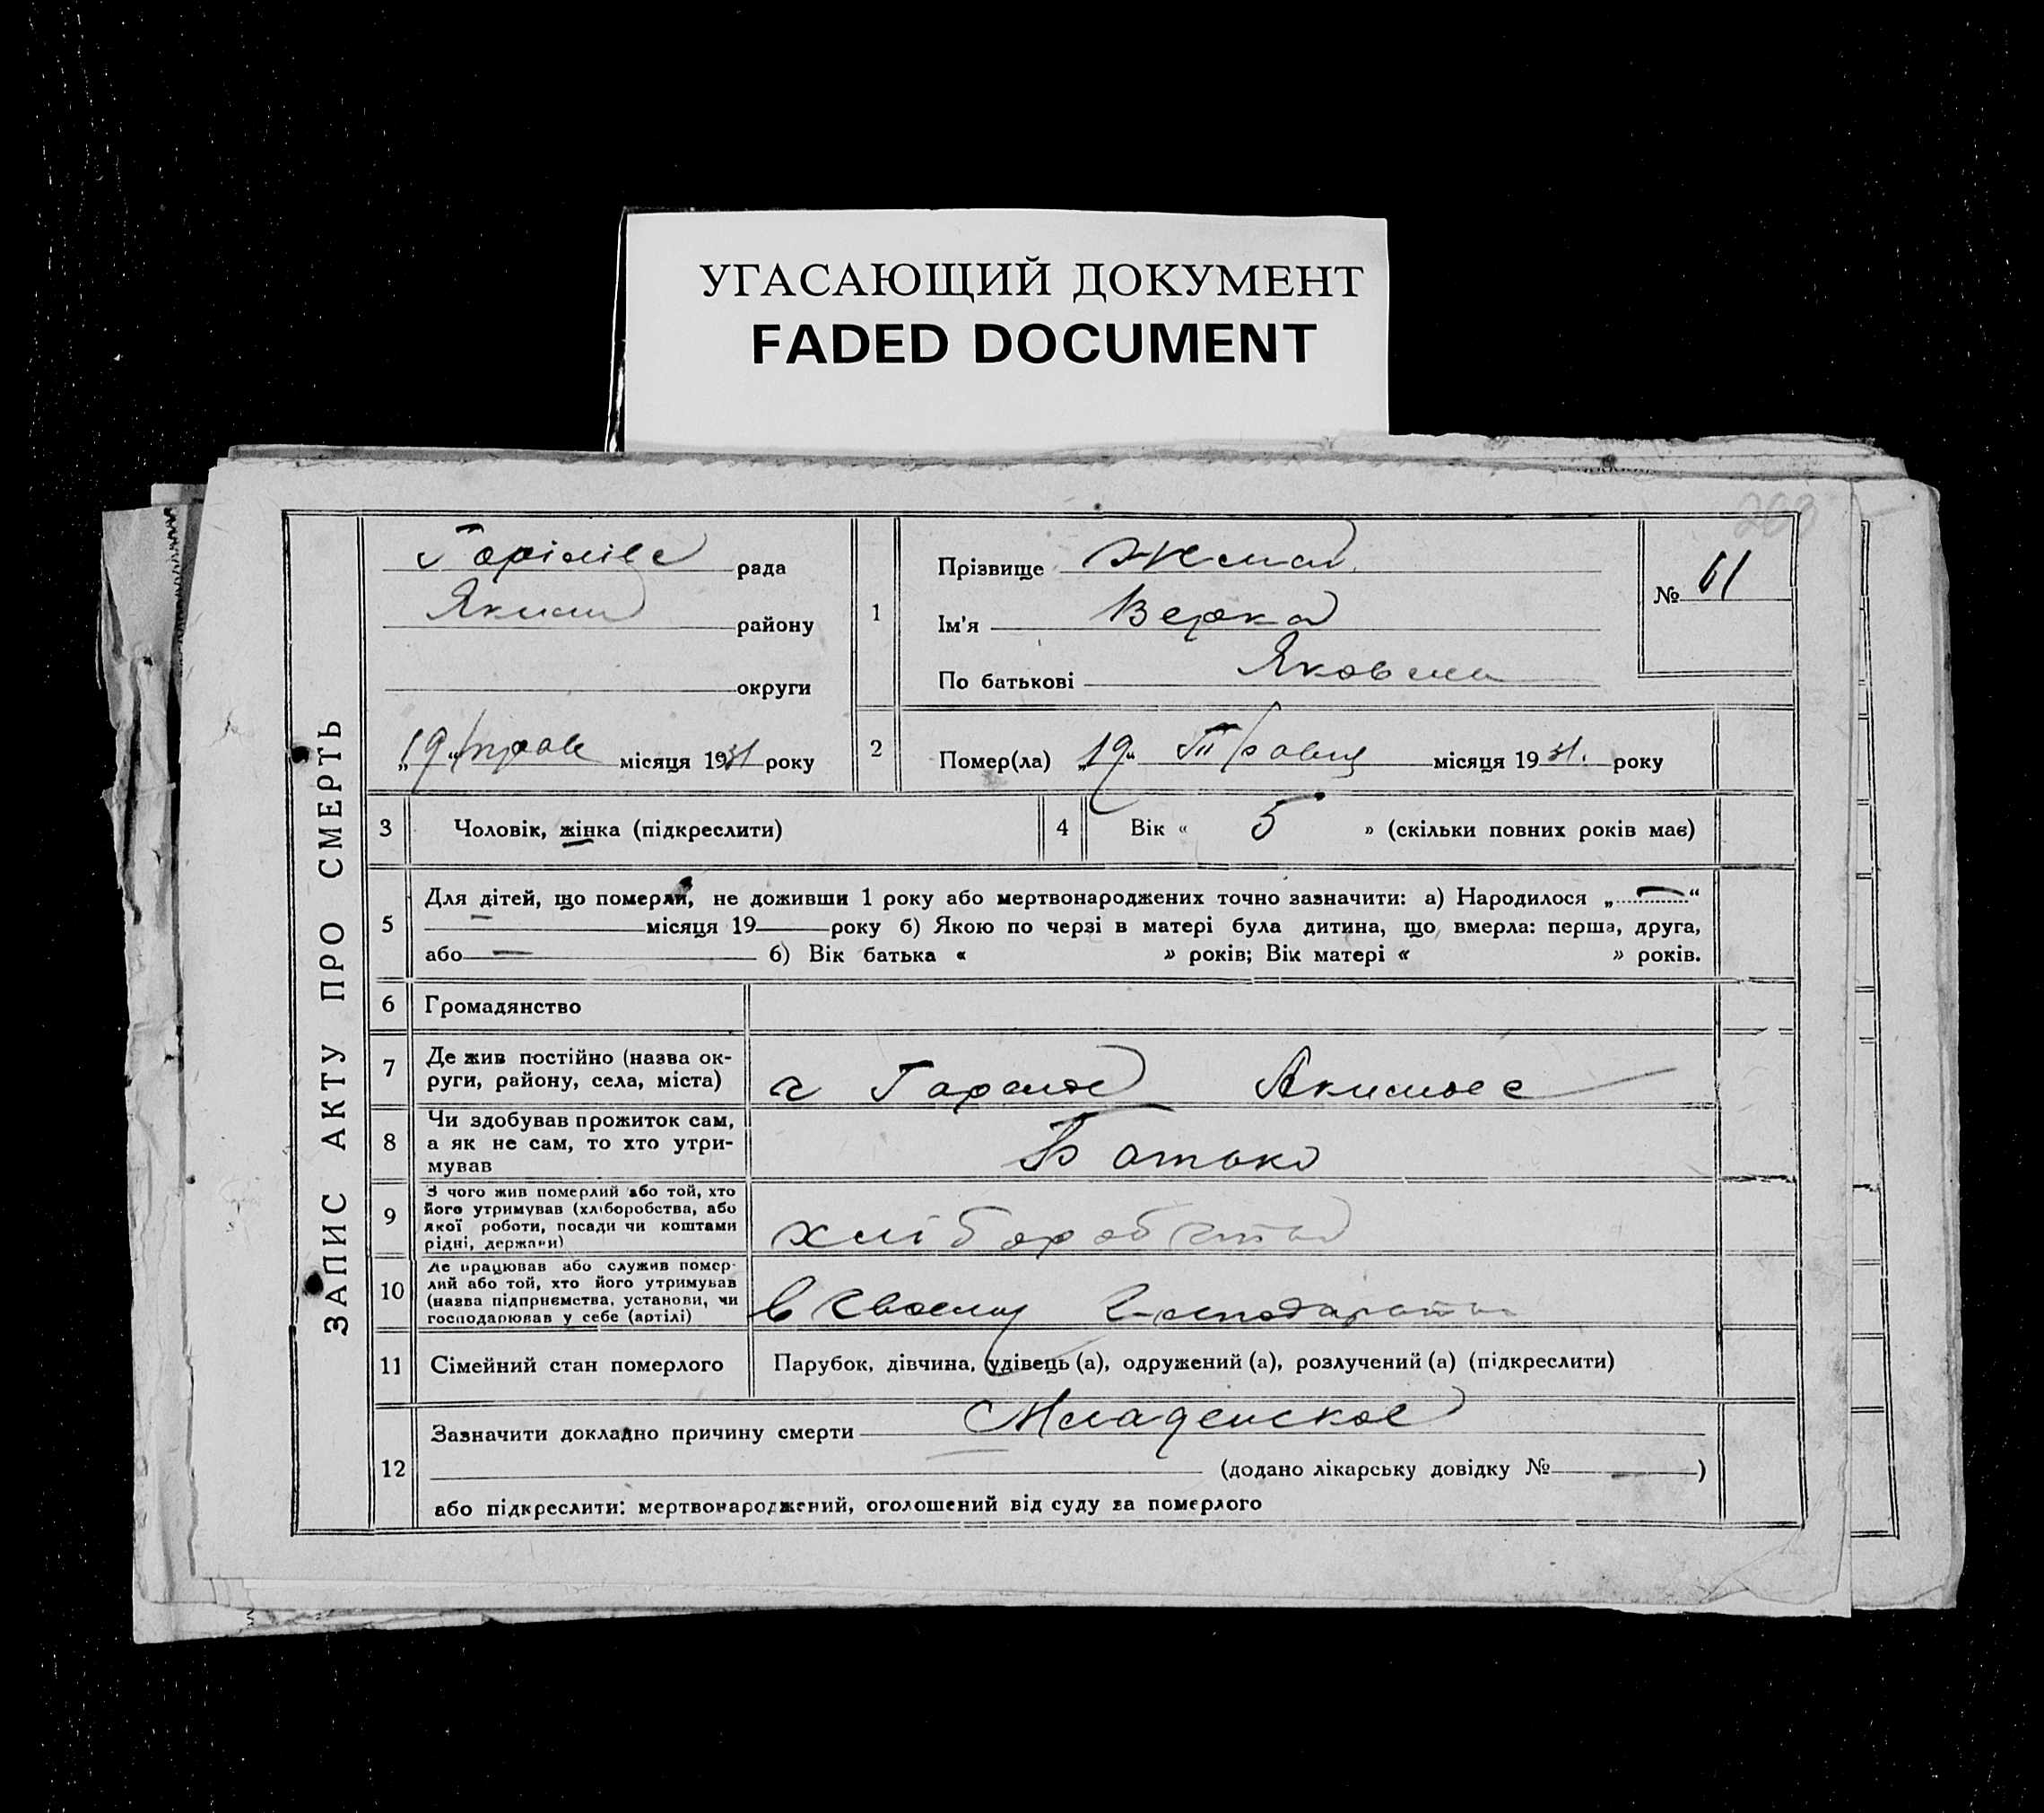 УГАСАЮЩИЙ ДОКУМЕНТ
FADED DOCUMENT
ЗАПИС АКТУ ПРО СМЕРТЬ
рада
району
округи
„19“ траве місяця 1931 року
1
Прізвище
Ім'я Верка
По батькові
№ 61
2
Помер(ла) „19“ Травня місяця 1931. року
3
Чоловік, жінка (підкреслити)
4
Вік « 5 » (скільки повних років має)
5
Для дітей, що померли, не доживши 1 року або мертвонароджених точно зазначити: а) Народилося „ — “
— місяця 19 року б) Якою по черзі в матері була дитина, що вмерла: перша, друга,
або — б) Вік батька « » років; Вік матері « » років.
6
Громадянство
7
Де жив постійно (назва ок-
руги, району, села, міста)
8
Чи здобував прожиток сам,
а як не сам, то хто утри-
мував
Батько
9
З чого жив померлий або той, хто
його утримував (хліборобства, або
якої роботи, посади чи коштами
рідні, держави)
хліборобство
10
Де працював або служив помер-
лий або той, хто його утримував
(назва підприємства, установи, чи
господарював у себе (артілі)
в своему
11
Сімейний стан померлого
Парубок, дівчина, удівець (а), одружений (а), розлучений (а) (підкреслити)
12
Зазначити докладно причину смерти Младенское
(додано лікарську довідку № — )
або підкреслити: мертвонароджений, оголошений від суду за померлого